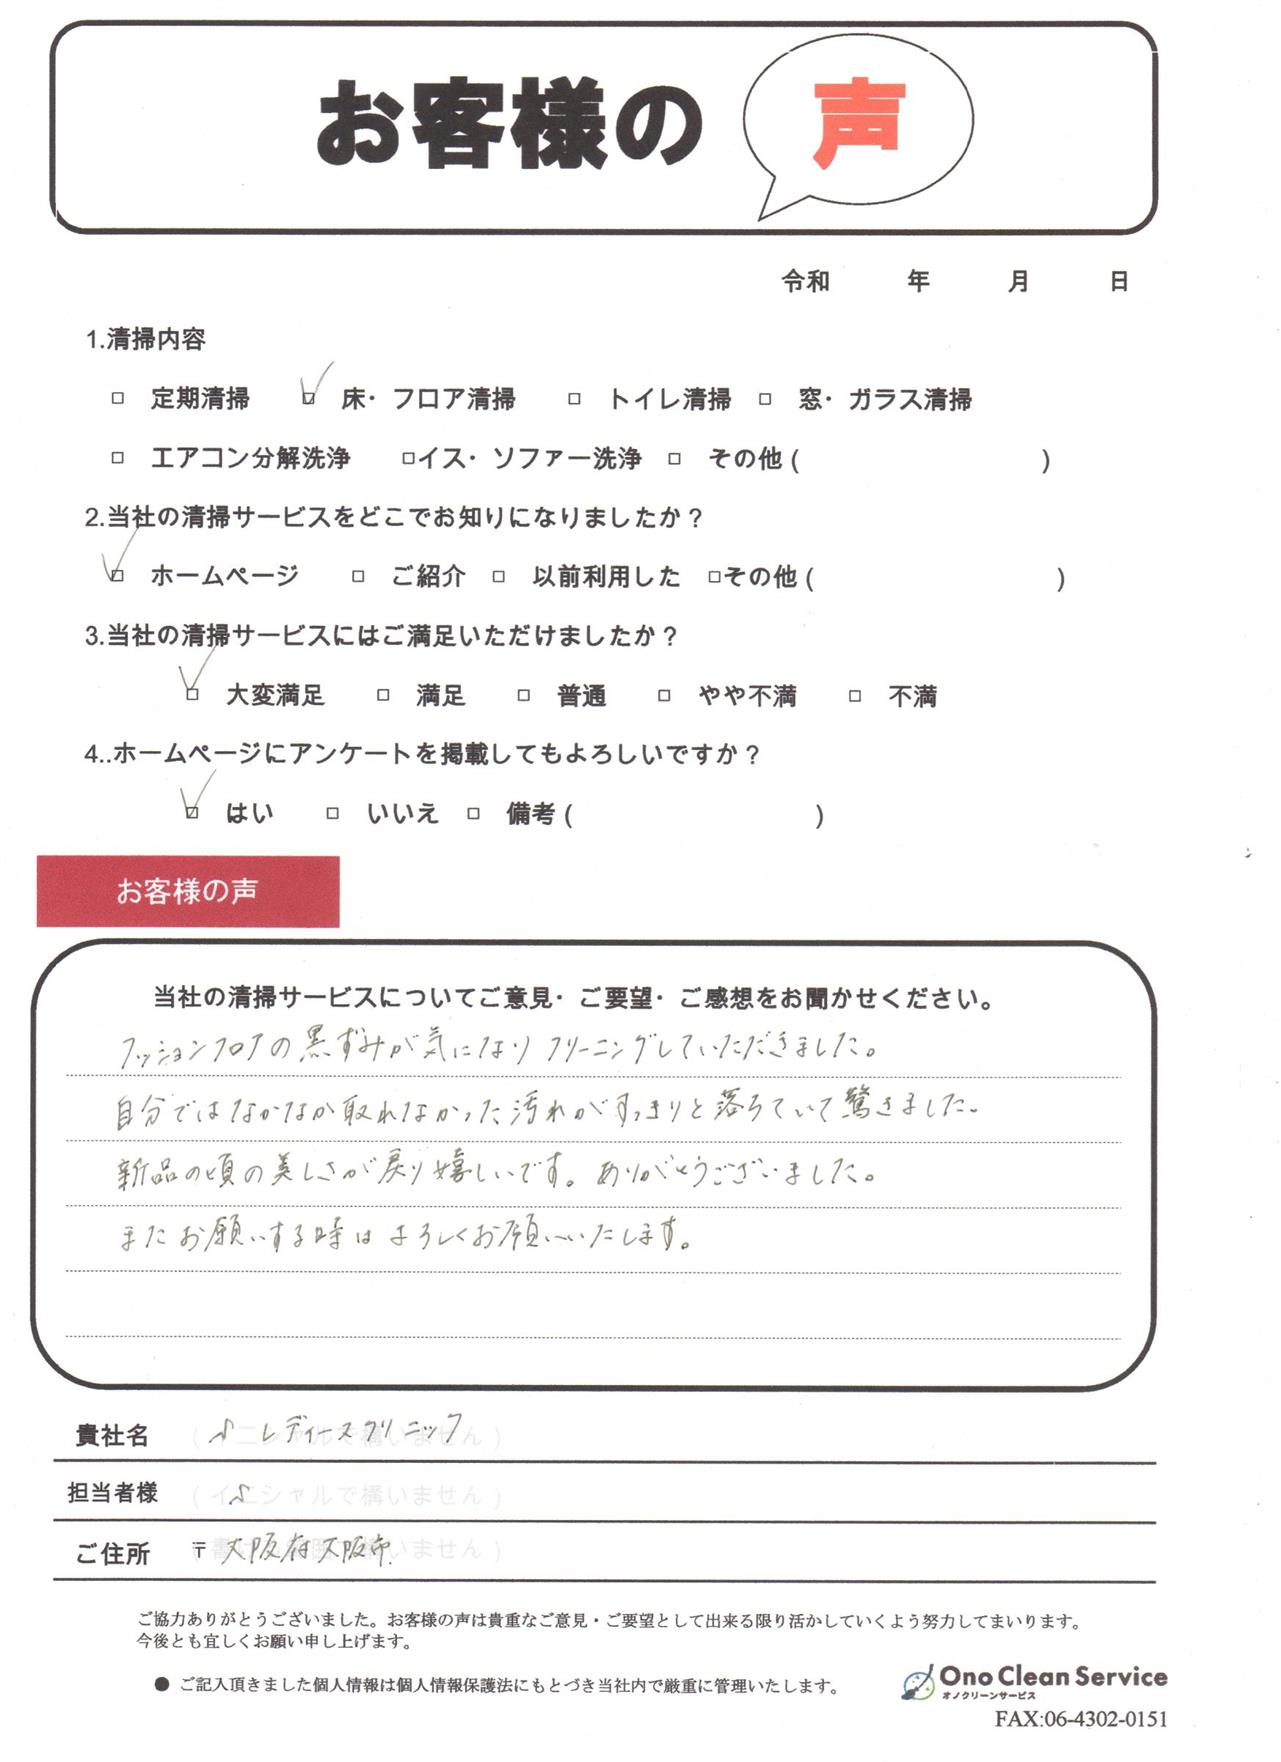 お客様の 声
令和 年 月 日
1.清掃内容
□ 定期清掃 ☑ 床・フロア清掃 □ トイレ清掃 □ 窓・ガラス清掃
□ エアコン分解洗浄 □イス・ソファー洗浄 □ その他 ( )
2.当社の清掃サービスをどこでお知りになりましたか？
☑ ホームページ □ ご紹介 □ 以前利用した □その他 ( )
3.当社の清掃サービスにはご満足いただけましたか？
☑ 大変満足 □ 満足 □ 普通 □ やや不満 □ 不満
4..ホームページにアンケートを掲載してもよろしいですか？
☑ はい □ いいえ □ 備考 ( )
お客様の声
当社の清掃サービスについてご意見・ご要望・ご感想をお聞かせください。
クッションフロアの黒ずみが気になりクリーニングしていただきました。
自分ではなかなか取れなかった汚れがすっきりと落ちていて驚きました。
新品の頃の美しさが戻り嬉しいです。ありがとうございました。
またお願いする時はよろしくお願いいたします。
貴社名 レディースクリニック
担当者様 (イニシャルで構いません)
ご住所 〒 大阪府大阪市
ご協力ありがとうございました。お客様の声は貴重なご意見・ご要望として出来る限り活かしていくよう努力してまいります。
今後とも宜しくお願い申し上げます。
● ご記入頂きました個人情報は個人情報保護法にもとづき当社内で厳重に管理いたします。
Ono Clean Service
オノクリーンサービス
FAX:06-4302-0151